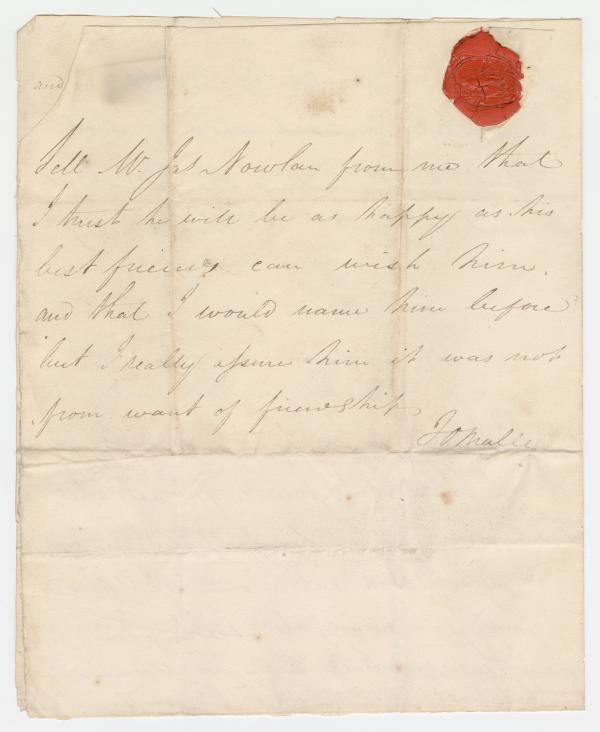 and
Tell Mr. Jas Nowlan from me that
I trust he will be as happy as his
best friends can wish him.
and that I would name him before
but I really assure him it was not
from want of friendship